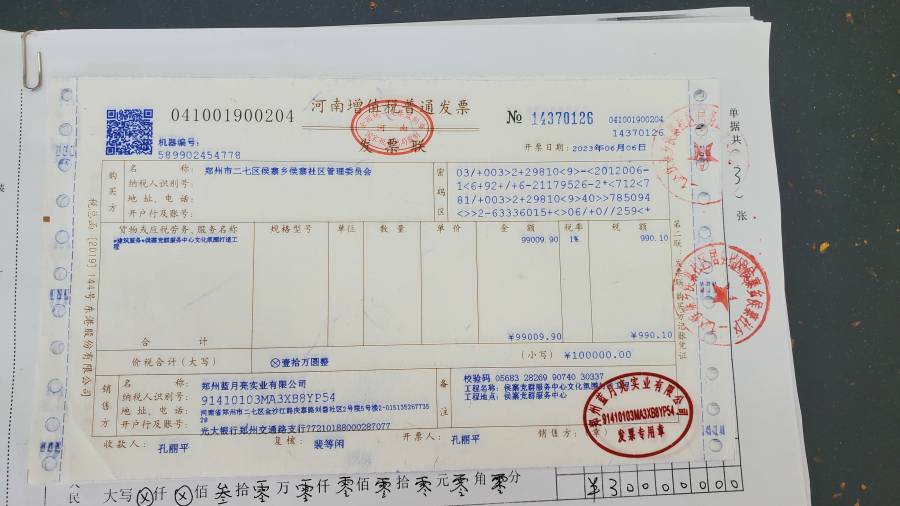 河南增值税普通发票
041001900204
№ 14370126
041001900204
14370126
河南
发票联
机器编号:
589902454778
开票日期: 2023年06月06日
购买方
名 称: 郑州市二七区侯寨乡侯寨社区管理委员会
纳税人识别号:
地址、电话:
开户行及账号:
密码区
03/+003>2+29810<9>-<2012006-
1<6+92+/+6-21179526-2*<712<7
81/+003>2+29810<9>40>>785094
<>>2-63336015+<>06/+0//259<*
货物或应税劳务、服务名称 规格型号 单位 数量 单价 金额 税率 税额
*建筑服务*侯寨党群服务中心文化氛围打造工程 99009.90 1% 990.10
合计 ¥99009.90 ¥990.10
价税合计(大写) ⊗壹拾万圆整 (小写) ¥100000.00
销售方
名 称: 郑州蓝月亮实业有限公司
纳税人识别号: 91410103MA3XB8YP54
地址、电话: 河南省郑州市二七区金沙江路
开户行及账号: 光大银行郑州交通路支行77210188000287077
备注
校验码 05683 28269 90740 30337
工程名称: 侯寨党群服务中心文化氛围打
工程地点: 侯寨党群服务中心
收款人: 孔丽平 复核: 裴等闲 开票人: 孔丽平 销售方:
郑州蓝月亮实业有限公司
91410103MA3XB8YP54
发票专用章
税总函〔2019〕144号 东港股份有限公司
第二联 发票联 购买方记账凭证
单据共(3)张
大写 ⊗仟⊗佰叁拾零万零仟零佰零拾零元零角零分
¥30000000